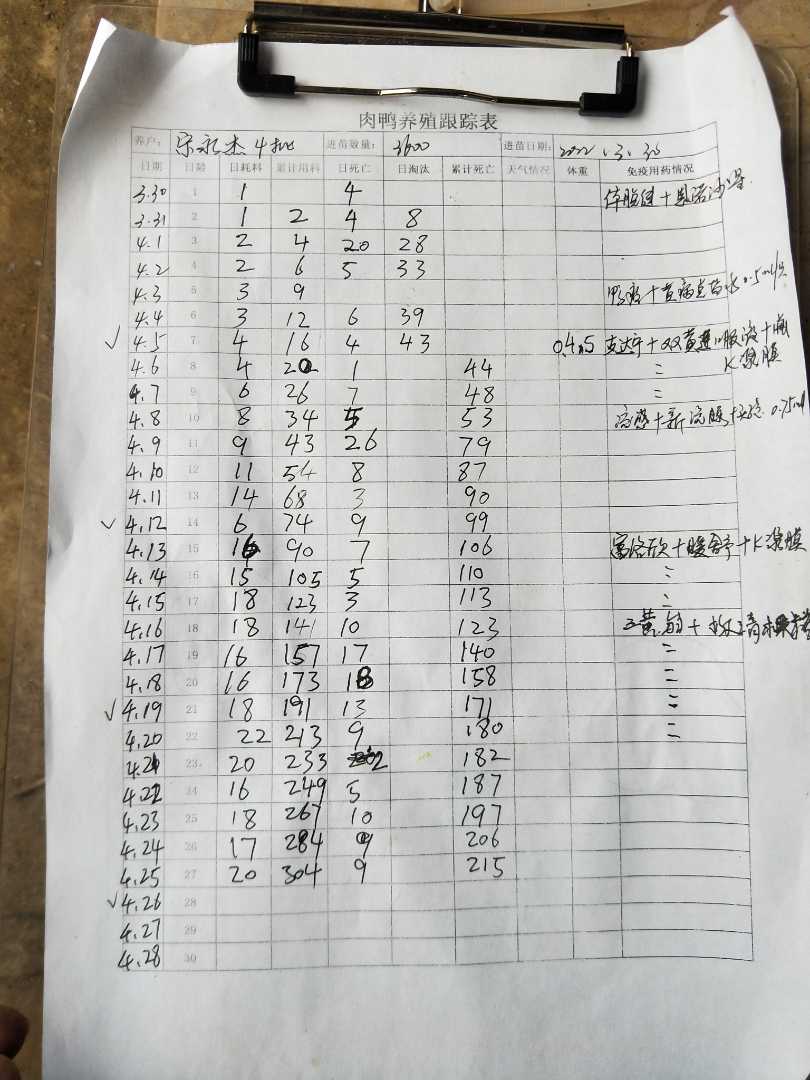 肉鸭养殖跟踪表
养户: 宋永杰4批 进苗数量: 3600 进苗日期: 2022.3.30
日期 日龄 日耗料 累计用料 日死亡 日淘汰 累计死亡 天气情况 体重 免疫用药情况
3.30 1 1 4
3.31 2 1 2 4 8
4.1 3 2 4 20 28
4.2 4 2 6 5 33
4.3 5 3 9
4.4 6 3 12 6 39
4.5 7 4 16 4 43 0.4.5 +双黄连口服液+
4.6 8 4 20 1 44 =
4.7 9 6 26 7 48 =
4.8 10 8 34 5 53 0.75ml
4.9 11 9 43 26 79
4.10 12 11 54 8 87
4.11 13 14 68 3 90
4.12 14 6 74 9 99
4.13 15 16 90 7 106
4.14 16 15 105 5 110 =
4.15 17 18 123 3 113 =
4.16 18 18 141 10 123
4.17 19 16 157 17 140 =
4.18 20 16 173 18 158 =
4.19 21 18 191 13 171 =
4.20 22 22 213 9 180 =
4.21 23 20 233 2 182
4.22 24 16 249 5 187
4.23 25 18 267 10 197
4.24 26 17 284 9 206
4.25 27 20 304 9 215
4.26 28
4.27 29
4.28 30